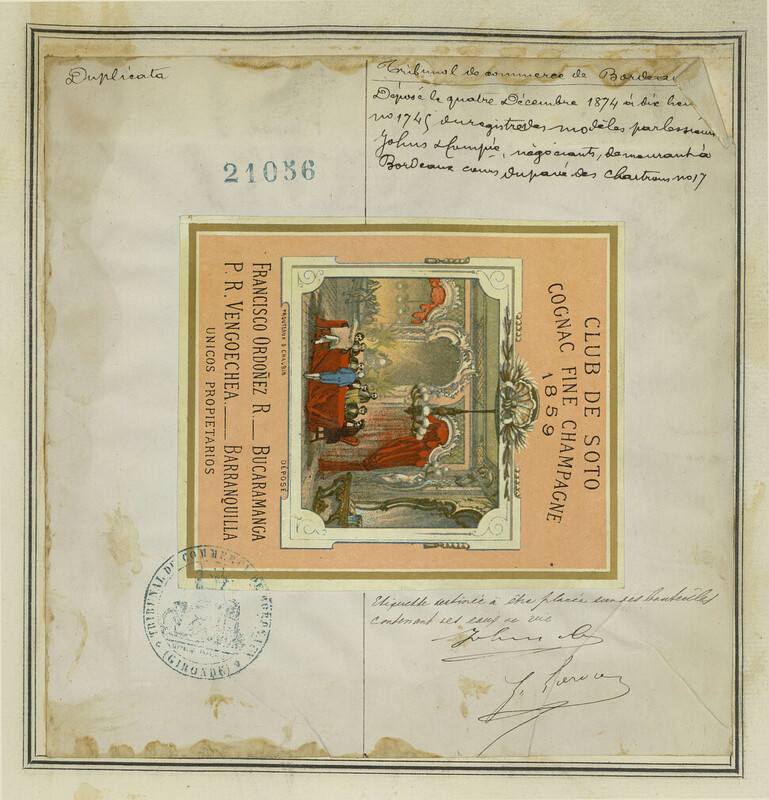 Duplicata
21056
Tribunal de commerce de Bordeau
Déposé le quatre Décembre 1874 à dix heu
no 1745 du registre des modèles par les sieurs
Johns &
négociants, demeurant à
Bordeaux cours du pavé des Chartrons no 17
CLUB DE SOTO
COGNAC FINE CHAMPAGNE
1859
DÉPOSÉ
FRANCISCO ORDOÑEZ R. __ BUCARAMANGA
P. R. VENGOECHEA. __ BARRANQUILLA
UNICOS PROPIETARIOS
TRIBUNAL DE COMMERCE DE BORDEAUX
(GIRONDE)
Etiquette destinée à être placée sur ses bouteilles
contenant ses eaux de vie
Johns